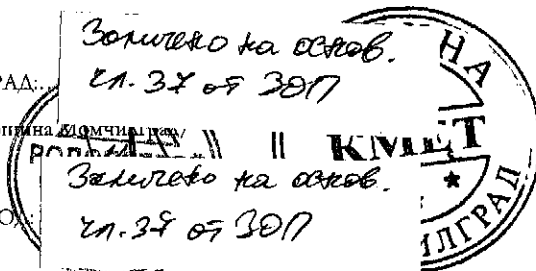 Заличено на основ.
чл. 37 от ЗОП
НА
РАД:
община Момчилград/
КМЕТ
Заличено на основ.
чл. 37 от ЗОП
ИЛГРАД